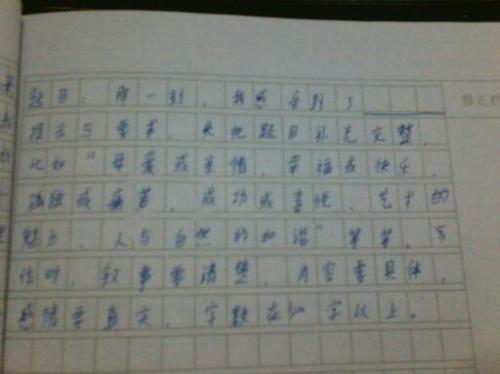 题目：那一刻，我感受到了____
提示与要求：先把题目补充完整，
比如“母爱或亲情、幸福或快乐、
孤独或痛苦、成功或喜悦、艺术的
魅力、人与自然的和谐”等等。写
作时，叙事要清楚，内容要具体，
感情要真实，字数在500字以上。